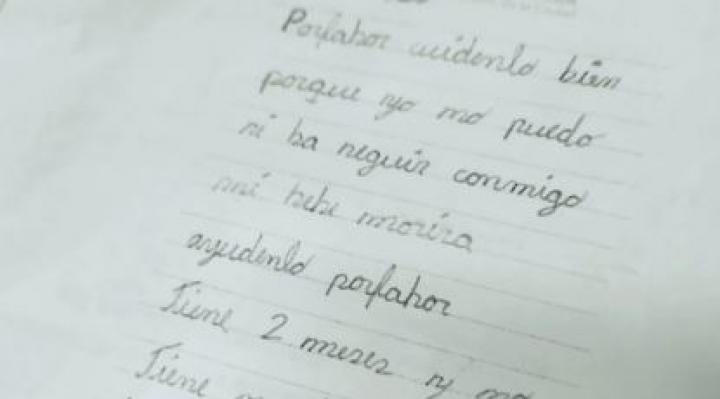 Porfabor cuidenlo bien
porque yo mo puedo
si ba seguir conmigo
mi bebe morira
ayudenlo porfabor
Tiene 2 meses y mo
Tiene